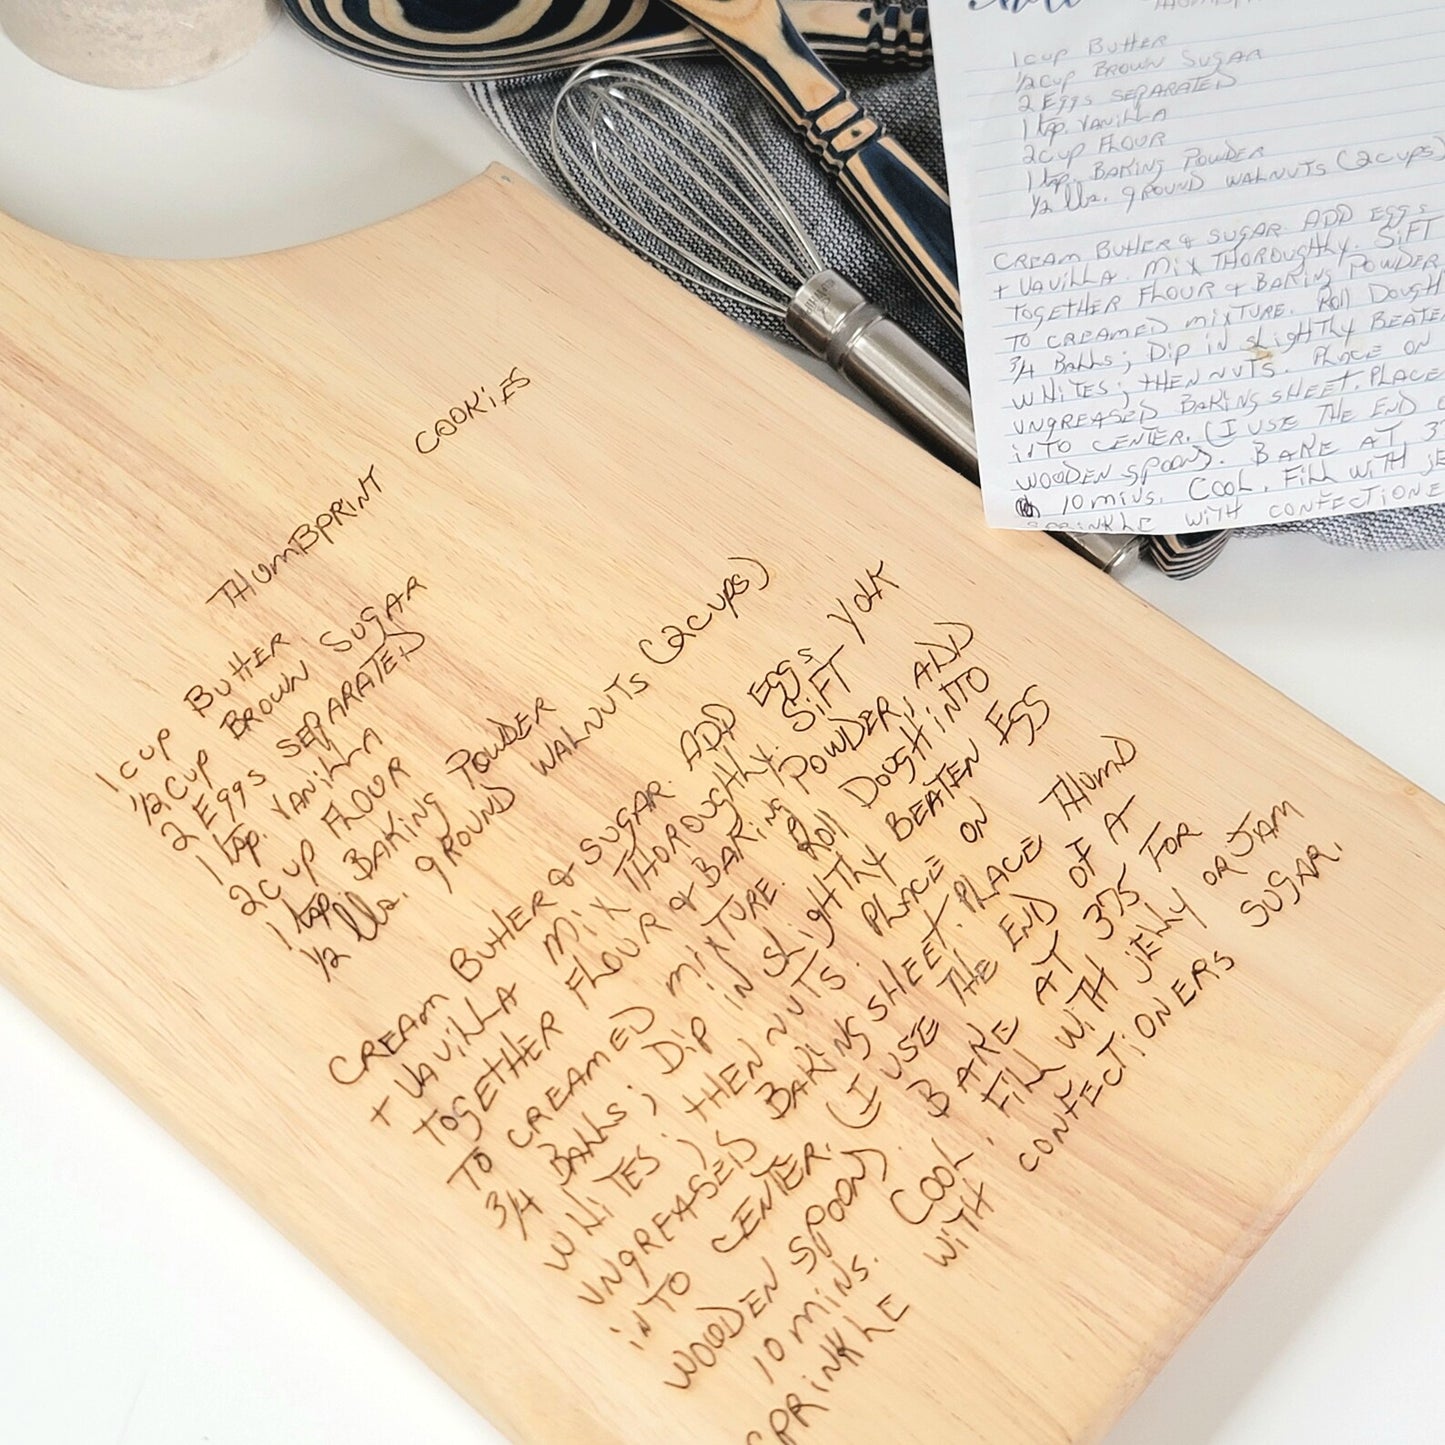 THUMBPRINT COOKIES
1 CUP BUTTER
1/2 CUP BROWN SUGAR
2 EGGS SEPARATED
1 tsp. VANILLA
2 CUP FLOUR
1 tsp. BAKING POWDER
1/2 lbs. GROUND WALNUTS (2 CUPS)
CREAM BUTTER & SUGAR. ADD EGGS YOLK
+ VAVILLA. MIX THOROUGHLY. SIFT
TOGETHER FLOUR & BAKING POWDER, ADD
TO CREAMED MIXTURE. Roll DOUGH INTO
3/4 BALLS; DIP IN SLIGHTLY BEATEN EGG
WHITES; THEN NUTS. PLACE ON
UNGREASED BAKING SHEET. PLACE THUMB
INTO CENTER. (I USE THE END OF A
WOODEN SPOON). BAKE AT 375 FOR
10 MINS. COOL. FILL WITH JELLY OR JAM
SPRINKLE WITH CONFECTIONERS SUGAR.
1 CUP BUTTER
1/2 CUP BROWN SUGAR
2 EGGS SEPARATED
1 tsp. VANILLA
2 CUP FLOUR
1 tsp. BAKING POWDER
1/2 lbs. GROUND WALNUTS (2 CUPS)
CREAM BUTTER & SUGAR ADD EGGS
+ VAVILLA. MIX THOROUGHLY. SIFT
TOGETHER FLOUR & BAKING POWDER
TO CREAMED MIXTURE. Roll DOUGH
3/4 BALLS; DIP IN SLIGHTLY BEATE
WHITES; THEN NUTS. PLACE ON
UNGREASED BAKING SHEET. PLACE
INTO CENTER. (I USE THE END
WOODEN SPOON). BAKE AT 37
10 MINS. COOL. FILL WITH JE
SPRINKLE WITH CONFECTIONE